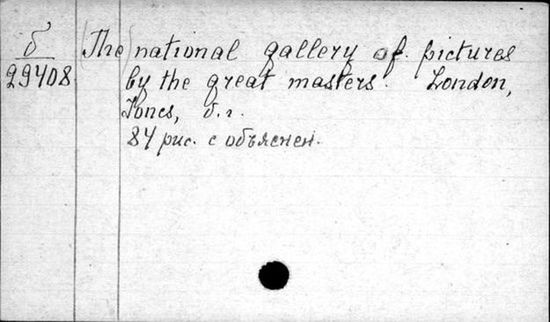 б
29408
The national gallery of pictures
by the great masters. London,
Jones, б. г.
84 рис. с объяснен.